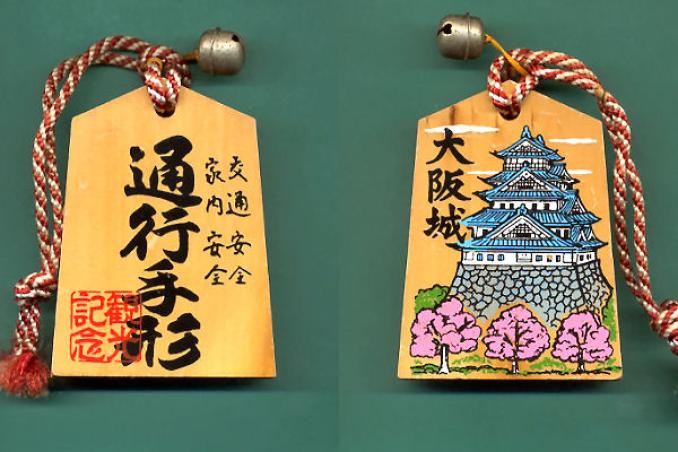 交通安全
家内安全
通行手形
観光
記念
大阪城